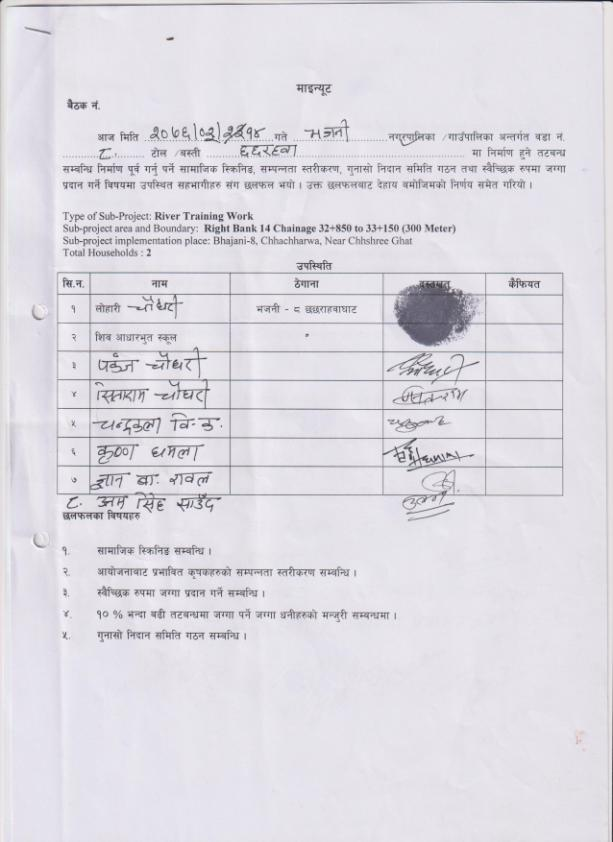 माइन्यूट
बैठक नं.
आज मिति २०७६|०२| गते भजनी नगरपालिका /गाउँपालिका अन्तर्गत वडा नं.
८ टोल /बस्ती मा निर्माण हुने तटबन्ध
सम्बन्धि निर्माण पूर्व गर्नु पर्ने सामाजिक स्क्रिनिङ, सम्पन्नता स्तरीकरण, गुनासो निदान समिति गठन तथा स्वैच्छिक रुपमा जग्गा
प्रदान गर्ने विषयमा उपस्थित सहभागीहरु संग छलफल भयो । उक्त छलफलबाट देहाय बमोजिमको निर्णय समेत गरियो ।
Type of Sub-Project: River Training Work
Sub-project area and Boundary: Right Bank 14 Chainage 32+850 to 33+150 (300 Meter)
Sub-project implementation place: Bhajani-8, Chhachharwa, Near Chhshree Ghat
Total Households : 2
उपस्थिति
सि.न. नाम ठेगाना दस्तखत कैफियत
१ लोहारी चौधरी भजनी - ८ छछराहवाघाट
२ शिव आधारभुत स्कूल "
३ पंकज चौधरी
४ सिताराम चौधरी सिताराम
५ चन्द्रकला वि. क.
६ कृष्ण धमला
७ ज्ञान बा. रावल
८. अम्म सिंह साउँद
छलफलका बिषयहरु
१. सामाजिक स्क्रिनिङ सम्बन्धि ।
२. आयोजनाबाट प्रभावित कृषकहरुको सम्पन्नता स्तरीकरण सम्बन्धि ।
३. स्वैच्छिक रुपमा जग्गा प्रदान गर्ने सम्बन्धि ।
४. १० % भन्दा बढी तटबन्धमा जग्गा पर्ने जग्गा धनीहरुको मन्जुरी सम्बन्धमा ।
५. गुनासो निदान समिति गठन सम्बन्धि ।